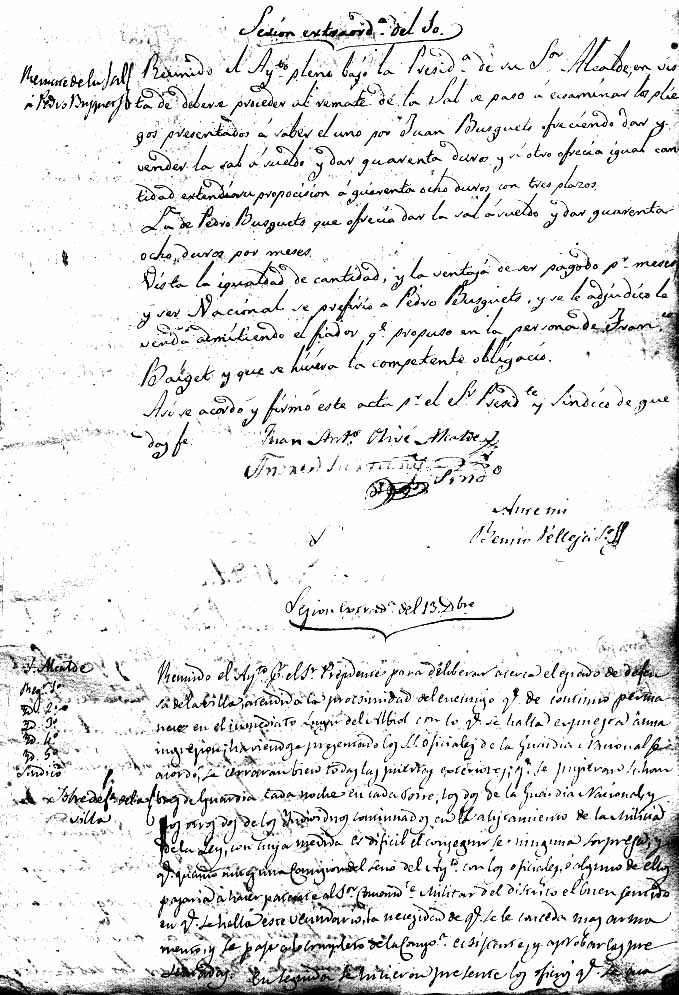 Sesion extraord.ª del 30.
Remate de la Sal
á Pedro Busquets
Reunido el Ay.to pleno bajo la Presid.ª de su Sor Alcalde, en vis
ta de deberse proceder al remate de la Sal se paso a ecsaminar los plie
gos presentados á saber el uno por Juan Busquets ofreciendo dar y
vender la sal á sueldo y dar quarenta duros y si otro ofrecia igual can
tidad extendia su proposicion á quarenta ocho duros con tres plazos.
La de Pedro Busquets que ofrecia dar la sal á sueldo y dar quarenta
ocho duros por meses.
Vista la igualdad de cantidad, y la ventaja de ser pagado p.r meses
y ser Nacional se prefirió a Pedro Busquets, y se le adjudicó la
venda admitiendo el fiador q.e propuso en la persona de Fran.co
Baiget y que se hiciera la competente obligació.
Asi se acordó y firmó este acta p.r el S.r Presid.te y Sindico de que
doy fe.
Juan Ant.o Olivé Alcalde
Sindo
Ante mi
Sesion extraord.ª del 13 Dbre
S. Alcalde
Reg.r 1º
Id. 2º
Id. 3º
Id. 4º
Id. 5º
Sindico
Sobre defensa de la
villa
Reunido el Ay.to p.r el S.r Presidente para deliberar acerca el estado de defen
sa de la villa atendida la procsimidad del enemigo q.e de continuo perma
nece en el inmediato lugar del Albiol con lo q.e se halla espuesta á una
ingresion, haviendose presentado los S.S. oficiales de la Guardia Nacional se
acordó, se cerraran bien todas las puertas exteriores, q.e se pusieran
de Guardia cada noche en cada Torre, los dos de la Guardia Nacional y
los otros dos de los Individuos continuados en el alistamiento de la Milicia
de la Ley, con cuya medida es dificil el conseguirse ninguna sorpresa, y
q.e quando una Comision del seno del Ay.to con los oficiales, ó alguno de ellos
pasaria á hacer presente al S.or Comand.te Militar del distrito el buen sentido
en q.e se halla este vecindario, la necesidad de q.e se le conceda mas arma
mento, y se pase a lo completo de la Comp.ª
En seguida se hicieron presente los oficios q.e se